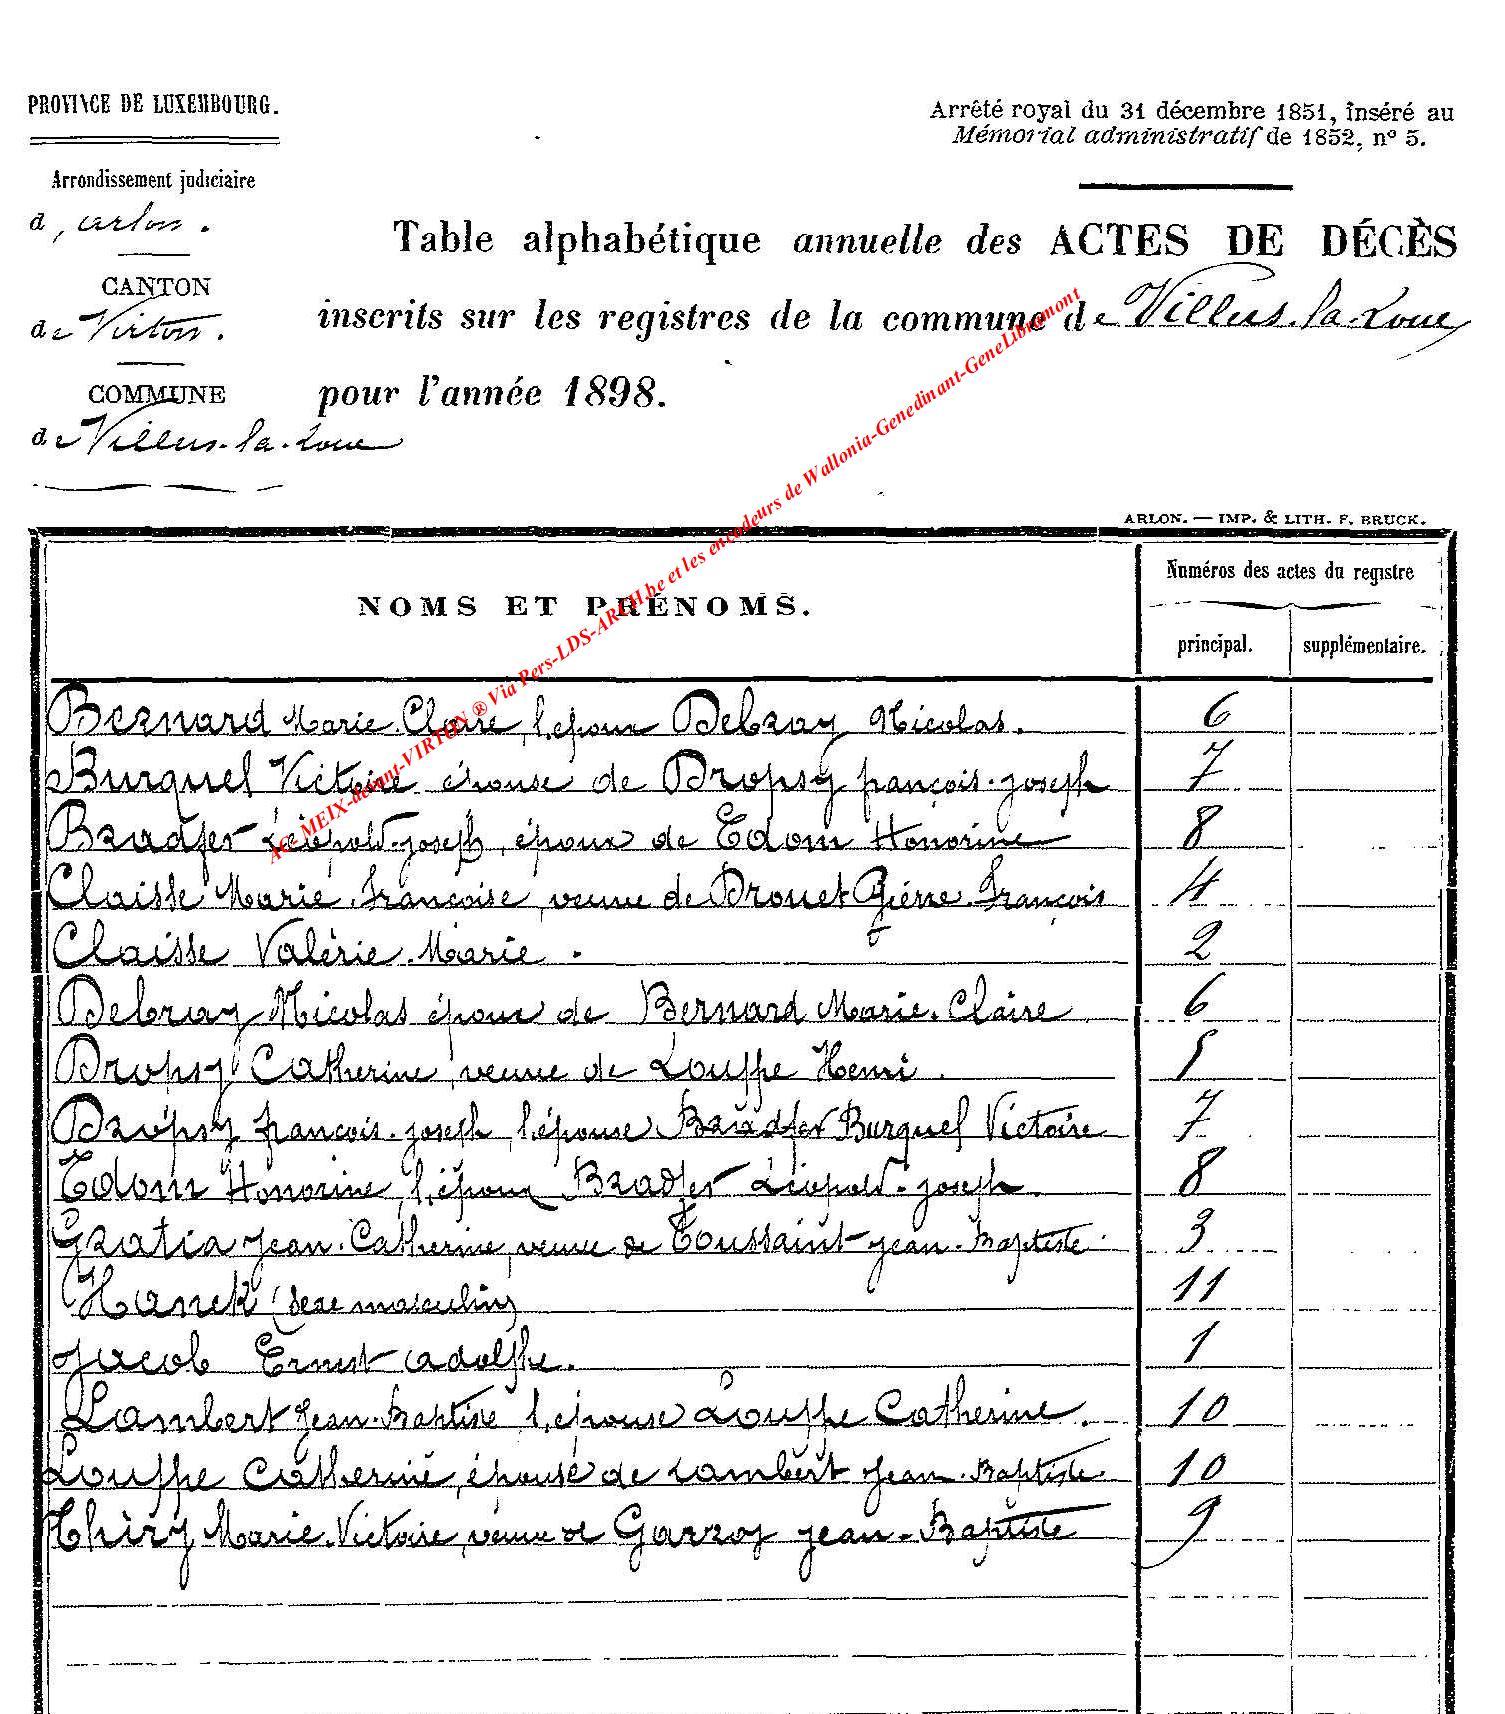 PROVINCE DE LUXEMBOURG.
Arrêté royal du 31 décembre 1851, inséré au
Mémorial administratif de 1852, n° 5.
Arrondissement judiciaire
d'arlon.
CANTON
de Virton.
COMMUNE
de Villers-la-Loue
Table alphabétique annuelle des ACTES DE DÉCÈS
inscrits sur les registres de la commune de Villers-la-Loue
pour l'année 1898.
ARLON. — IMP. & LITH. F. BRUCK.
AC- MEIX-devant-VIRTON ® Via Pers-LDS-ARCH.be et les encodeurs de Wallonia-Genedinant-GeneLibramont
NOMS ET PRÉNOMS.
Numéros des actes du registre
principal. supplémentaire.
Bernard Marie-Claire, l'époux Debray Nicolas. 6
Burquel Victoire épouse de Dropsy françois-joseph 7
Bradfer Léopold-joseph, époux de Edom Honorine 8
Claisse Marie-Françoise, veuve de Drouet Pierre-François 4
Claisse Valérie-Marie. 2
Debray Nicolas époux de Bernard Marie-Claire 6
Dropsy Catherine, veuve de Louppe Henri. 5
Dropsy françois-joseph, l'épouse Bradfer Burquel Victoire 7
Edom Honorine, l'époux Bradfer Léopold-joseph. 8
Gratia Jean-Catherine, veuve de Toussaint Jean-Baptiste 3
Hanck (sexe masculin) 11
Jacob Ernest Adolphe. 1
Lambert Jean-Baptiste, l'épouse Louppe Catherine. 10
Louppe Catherine, épouse de Lambert Jean-Baptiste. 10
Thiry Marie-Victoire, veuve de Garroy Jean-Baptiste 9